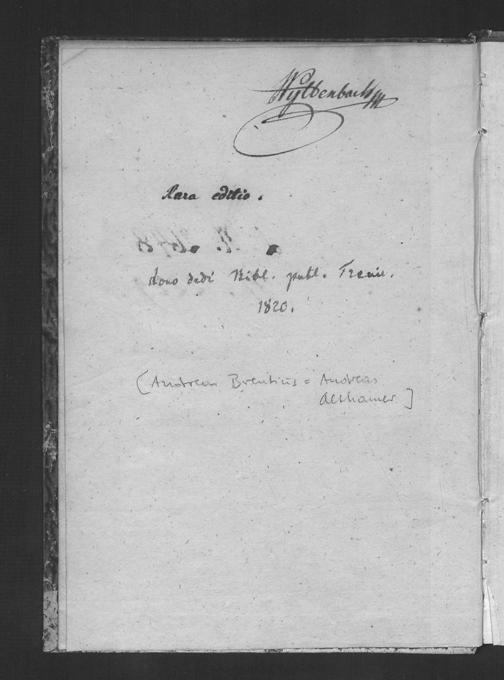 Wyttenbach
Rara editio.
dono dedi Bibl. publ. Trevir.
1820.
[Andreas Brentius = Andreas
Althamer]